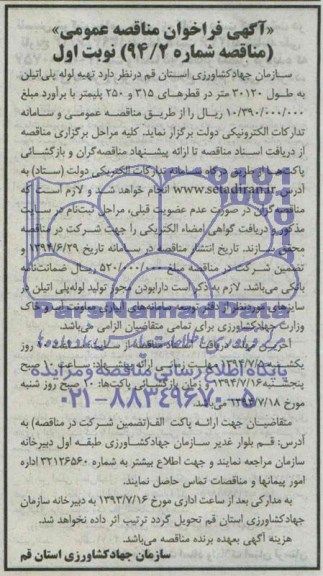 «آگهی فراخوان مناقصه عمومی»
(مناقصه شماره ۹۴/۲) نوبت اول
سازمان جهادکشاورزی استان قم درنظر دارد تهیه لوله پلی‌اتیلن
به طول ۳۰۱۳۰ متر در قطرهای ۳۱۵ و ۲۵۰ پلیمتر با برآورد مبلغ
۱۰/۳۹۰/۰۰۰/۰۰۰ ریال را از طریق مناقصه عمومی و سامانه
تدارکات الکترونیکی دولت برگزار نماید. کلیه مراحل برگزاری مناقصه
از دریافت اسناد مناقصه تا ارائه پیشنهاد مناقصه‌گران و بازگشائی
پاکت‌ها از طریق درگاه سامانه تدارکات الکتریکی دولت (ستاد) به
آدرس www.setadiran.ir انجام خواهد شد و لازم است که
مناقصه‌گران در صورت عدم عضویت قبلی، مراحل ثبت‌نام در سایت
مذکور و دریافت گواهی امضاء الکتریکی را جهت شرکت در مناقصه
محقق سازند. تاریخ انتشار مناقصه در سامانه تاریخ ۱۳۹۴/۶/۲۹ و
تضمین شرکت در مناقصه مبلغ ۵۲۰/۰۰۰/۰۰۰ ریال ضمانت‌نامه
بانکی می‌باشد. لازم به ذکر است دارابودن مجوز تولید لوله‌پلی اتیلن در
سایزهای موردنظر از دفتر توسعه سامانه‌های آبیاری معاونت آب و خاک
وزارت جهادکشاورزی برای تمامی متقاضیان الزامی می‌باشد.
ParsNamadData
پایگاه اطلاع رسانی مناقصه و مزایده
۰۲۱-۸۸۳۴۹۶۷۰
مورخ ۱۳۹۴/۷/۱۸ می‌باشد.
متقاضیان جهت ارائه پاکت الف(تضمین شرکت در مناقصه) به
آدرس: قم بلوار غدیر سازمان جهادکشاورزی طبقه اول دبیرخانه
سازمان مراجعه نمایند و جهت اطلاع بیشتر به شماره ۳۲۱۲۶۵۶۰ اداره
امور پیمانها و مناقصات تماس حاصل نمایند.
به مدارکی بعد از ساعت اداری مورخ ۱۳۹۳/۷/۱۶ به دبیرخانه سازمان
جهادکشاورزی استان قم تحویل گردد ترتیب اثر داده نخواهد شد.
هزینه آگهی بعهده برنده مناقصه می‌باشد.
سازمان جهادکشاورزی استان قم